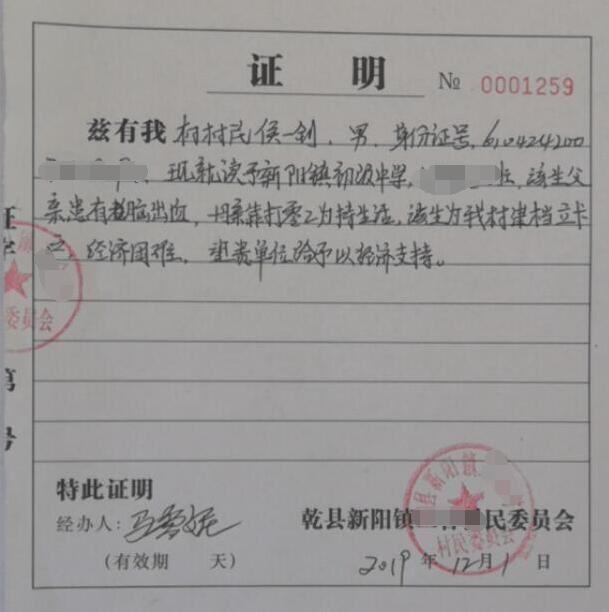 证 明
№ 0001259
兹有我村村民侯一钊，男，身份证号，610424200
现就读于新阳镇初级中学，班，该生父
亲患有脑出血，母亲靠打零工为持生活，该生为我村建档立卡
户，经济困难，望贵单位给予以经济支持。
证
字
委员会
第
号
特此证明
经办人：
乾县新阳镇 民委员会
（有效期 天）
2019年12月1日
乾县新阳镇
村民委员会